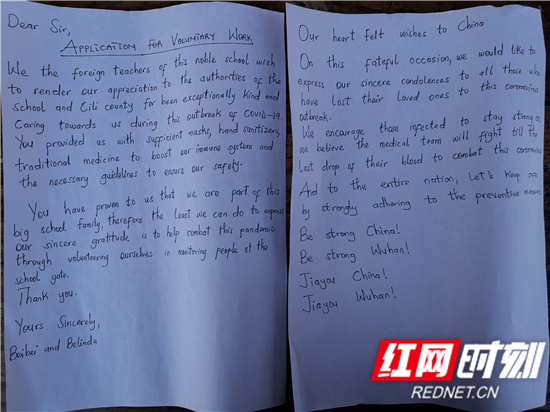 Dear Sir,
APPLICATION FOR VOLUNTARY WORK
We the foreign teachers of this noble school wish
to render our appreciation to the authorities of the
school and Cili county for been exceptionally kind and
Caring towards us during this outbreak of COVID-19.
You provided us with sufficient masks, hand sanitizers,
traditional medicine to boost our immune system and
the necessary guidelines to ensure our safety.
You have proven to us that we are part of this
big school family, therefore the least we can do to express
our sincere gratitude is to help combat this pandemic
through volunteering ourselves in monitoring people at the
school gate.
Thank you.
Yours Sincerely,
Beibei and Belinda
Our heart felt wishes to China
On this fateful occasion, we would like to
express our sincere condolences to all those who
have lost their loved ones to this coronavirus
outbreak.
We encourage those infected to stay strong as
we believe the medical team will fight till the
last drop of their blood to combat this coronavirus
And to the entire nation, Let's keep
by strongly adhering to the preventive
Be strong China!
Be strong Wuhan!
Jiayou China!
Jiayou Wuhan!
红网时刻
REDNET.CN